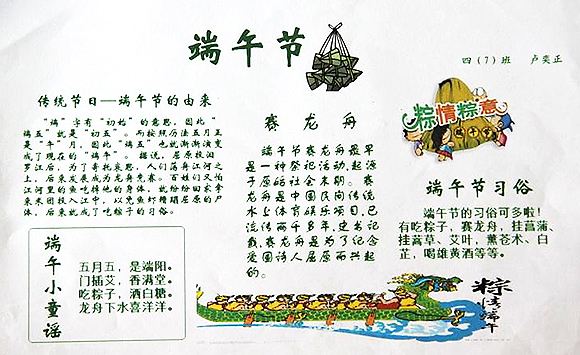 端午节
四（7）班 卢奕正
传统节日—端午节的由来
“端”字有“初始”的意思，因此“
端五”就是“初五”。而按照历法五月正
是“午”月，因此“端五”也就渐渐演变
成了现在的“端午”。据说，屈原投汨
罗江后，为了寄托哀思，人们荡舟江河之
上，后来发展成为龙舟竞赛。百姓们又怕
江河里的鱼吃掉他的身体，就纷纷回家拿
来米团投入江中，以免鱼虾糟蹋屈原的尸
体，后来就成了吃粽子的习俗。
端午小童谣
五月五，是端阳。
门插艾，香满堂。
吃粽子，洒白糖。
龙舟下水喜洋洋。
赛龙舟
端午节赛龙舟最早
是一种祭祀活动，起源
于原始社会末期。赛
龙舟是中国民间传统
水上体育娱乐项目，已
流传两千多年，史书记
载，赛龙舟是为了纪念
爱国诗人屈原而兴起
的。
粽情粽意
端午节
端午节习俗
端午节的习俗可多啦！
有吃粽子，赛龙舟，挂菖蒲、
挂蒿草、艾叶，薰苍术、白
芷，喝雄黄酒等等。
粽
情端午